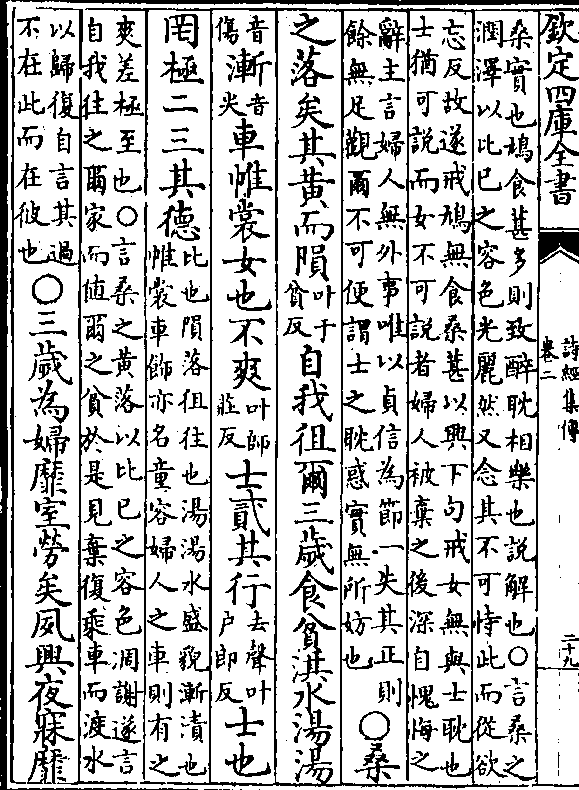 欽定四庫全書
詩經集傳
卷二
二十九
桑實也鳩食葚多則致醉耽相樂也説解也○言桑之
潤澤以比己之容色光麗然又念其不可恃此而從欲
忘反故遂戒鳩無食桑葚以興下句戒女無與士耽也
士猶可説而女不可説者婦人被棄之後深自愧悔之
辭主言婦人無外事唯以貞信為節一失其正則
餘無足觀爾不可便謂士之耽惑實無所妨也
○桑
之落矣其黄而隕叶于貧反自我徂爾三歲食貧淇水湯湯
音傷漸音尖車帷裳女也不爽叶師莊反士貳其行去聲叶户郎反士也
罔極二三其德
比也隕落徂往也湯湯水盛貌漸漬也
帷裳車飾亦名童容婦人之車則有之
爽差極至也○言桑之黄落以比己之容色凋謝遂言
自我往之爾家而值爾之貧於是見棄復乘車而渡水
以歸復自言其過
不在此而在彼也
○三歲為婦靡室勞矣夙興夜寐靡